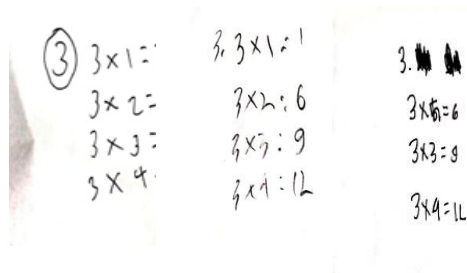 ③ 3×1=
3×2=
3×3=
3×4
3. 3×1=1
3×2=6
3×3=9
3×4=12
3.
3×3=9
3×4=12